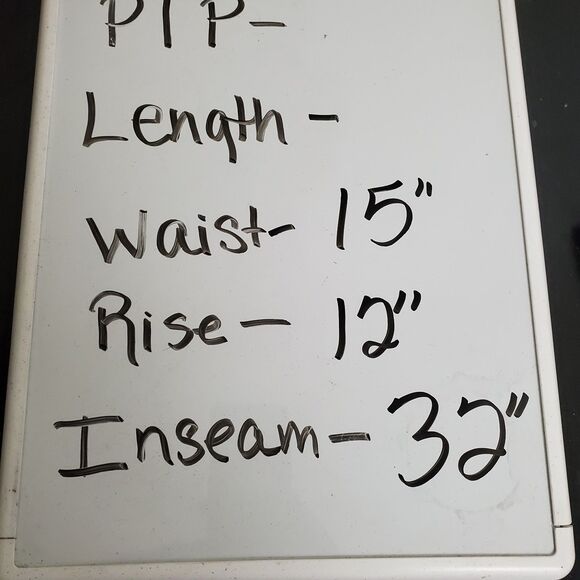 PTP-
Length -
Waist- 15"
Rise - 12"
Inseam - 32"